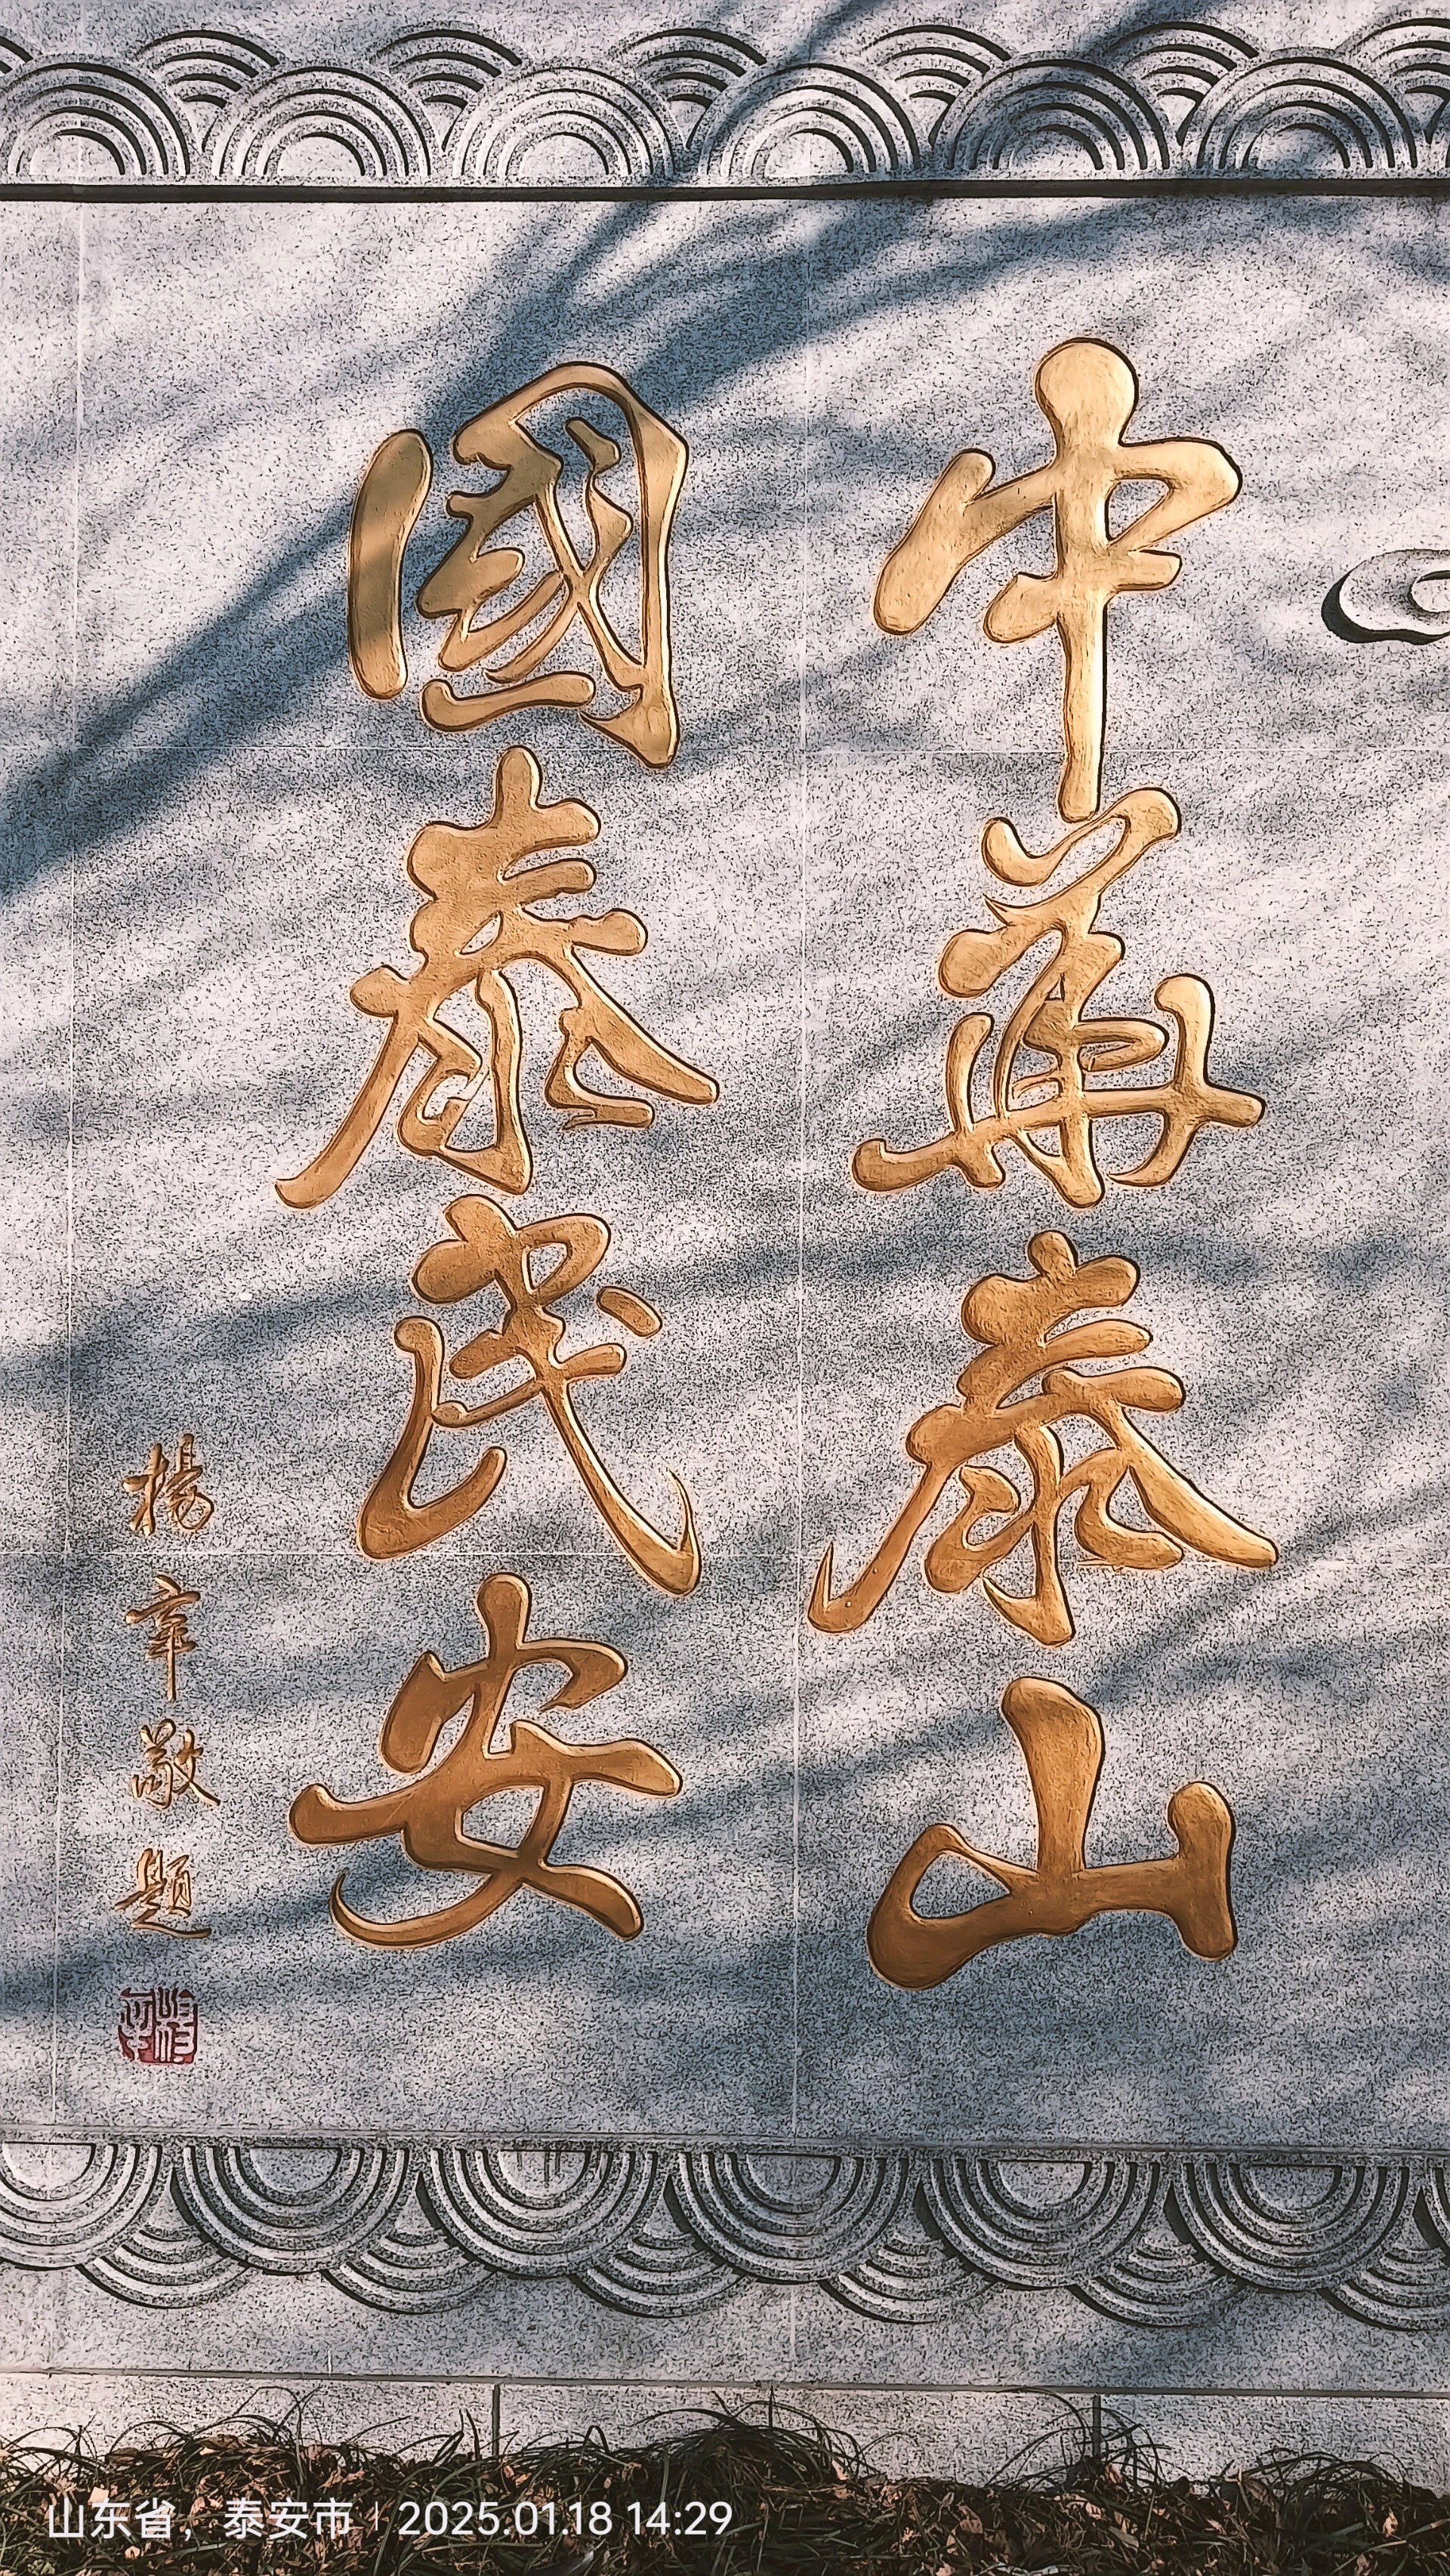 中華泰山
國泰民安
楊辛敬題
山东省，泰安市 | 2025.01.18 14:29